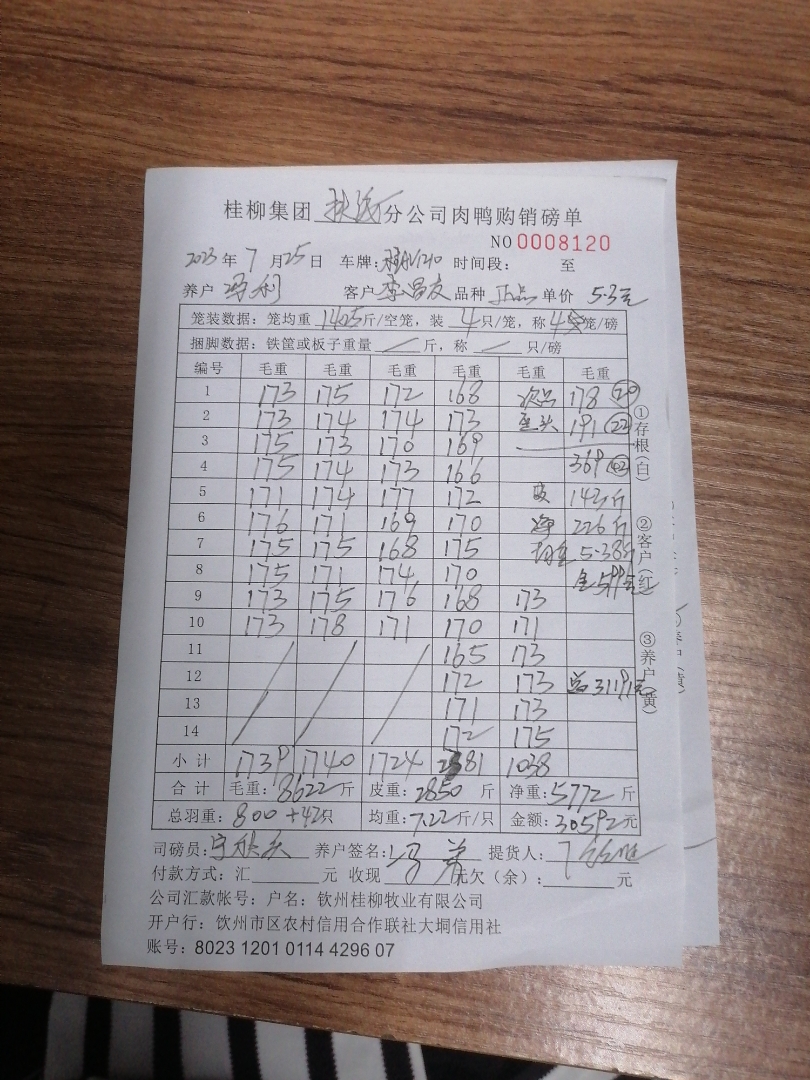 桂柳集团 分公司肉鸭购销磅单
NO 0008120
2023年7月25日 车牌: 时间段: 至
养户 客户 李昌友 品种 正品 单价 5.3元
笼装数据：笼均重 14.25斤/空笼，装 4只/笼，称 笼/磅
捆脚数据：铁筐或板子重量 / 斤，称 / 只/磅
编号 毛重 毛重 毛重 毛重 毛重 毛重
1 173 175 172 168 次品 178 (20)
2 173 174 174 173 歪头 191 (22)
3 175 173 170 169
4 175 174 173 166 369 (42)
5 171 174 177 172 皮 143斤
6 176 171 169 170 净 226斤
7 175 175 168 175 均重 5.38斤
8 175 171 174 170 金 599元
9 173 175 176 168 173
10 173 178 171 170 171
11 165 173
12 172 173 总 31191元
13 171 173
14 172 175
小计 1739 1740 1724 2381 1038
合计 毛重: 8622斤 皮重: 2850斤 净重: 5772斤
总羽重: 800+42只 均重: 7.22斤/只 金额: 30592元
司磅员: 养户签名: 提货人:
付款方式: 汇 元 收现 元欠（余）: 元
公司汇款帐号: 户名: 钦州桂柳牧业有限公司
开户行: 钦州市区农村信用合作联社大垌信用社
账号: 8023 1201 0114 4296 07
①存根(白)
②客户(红)
③养户(黄)